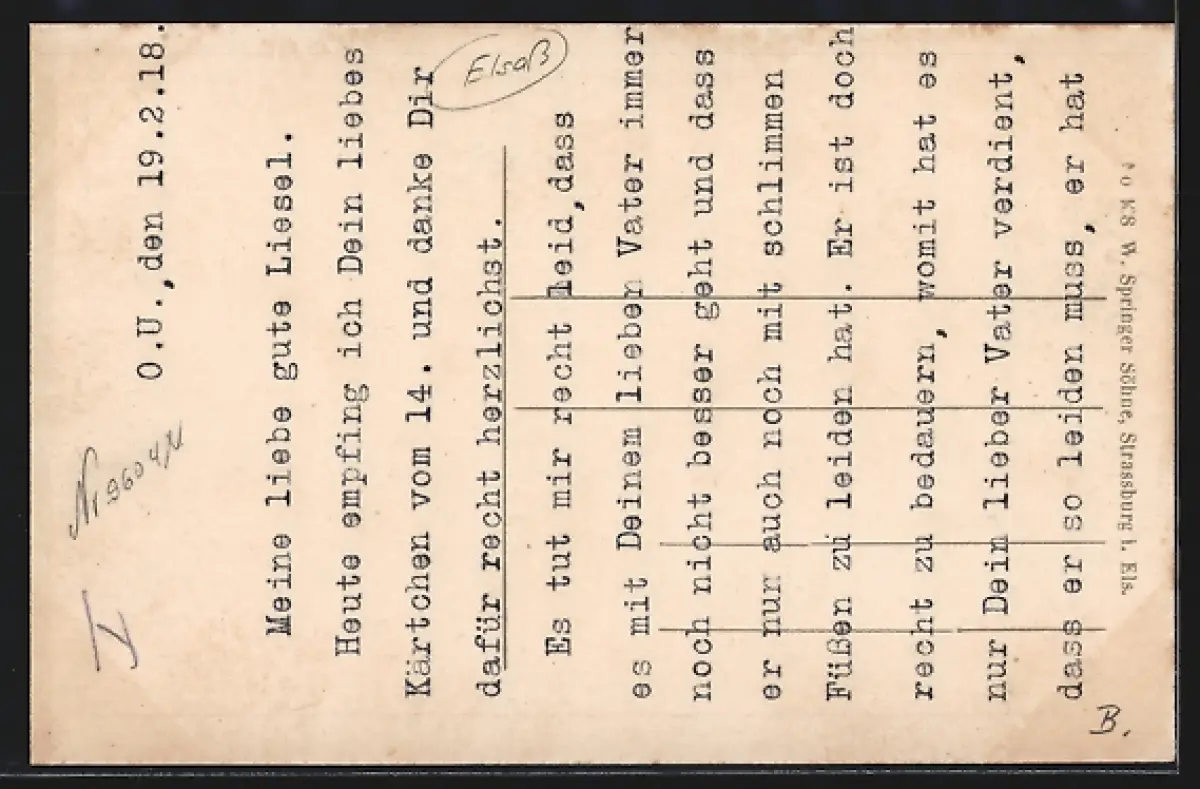 O.U.,den 19.2.18.
Meine liebe gute Liesel.
Heute empfing ich Dein liebes
Kärtchen vom 14. und danke Dir
dafür recht herzlichst.
Es tut mir recht leid,dass
es mit Deinem lieben Vater immer
noch nicht besser geht und dass
er nun auch noch mit schlimmen
Füßen zu leiden hat. Er ist doch
recht zu bedauern, womit hat es
nur Dein lieber Vater verdient,
dass er so leiden muss, er hat
Elsaß
W. Springer Söhne, Strassburg i. Els.
B.